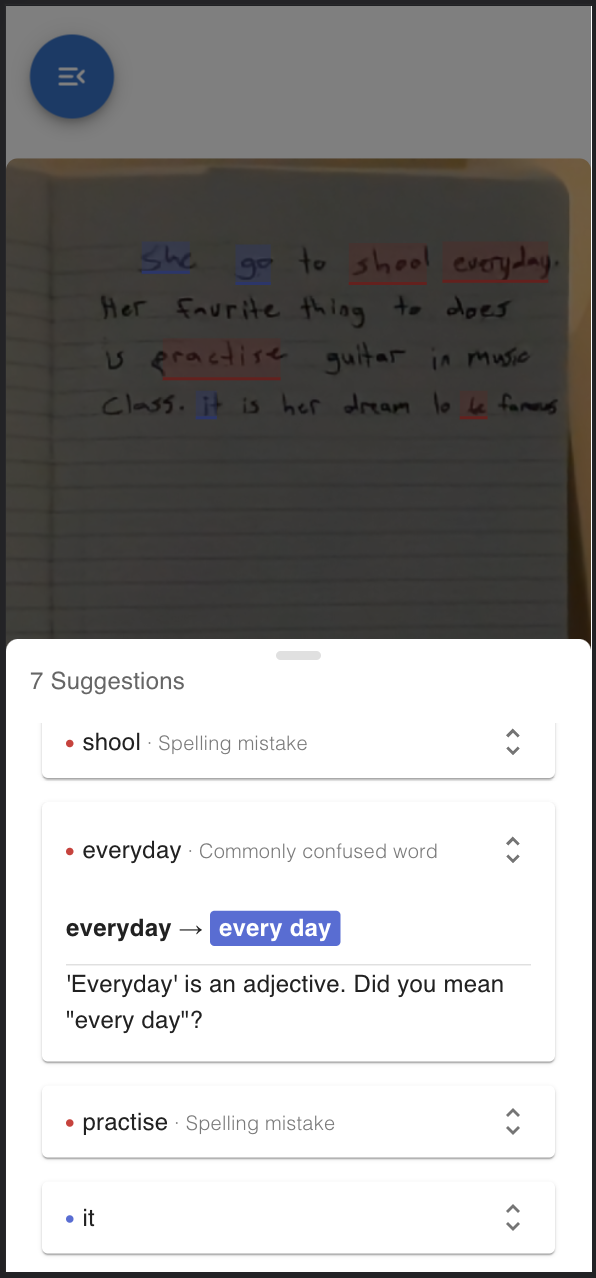 She go to shool everyday.
Her favrite thing to does
is practise guitar in music
Class. it is her dream to be famous
7 Suggestions
shool · Spelling mistake
everyday · Commonly confused word
everyday → every day
'Everyday' is an adjective. Did you mean
"every day"?
practise · Spelling mistake
it